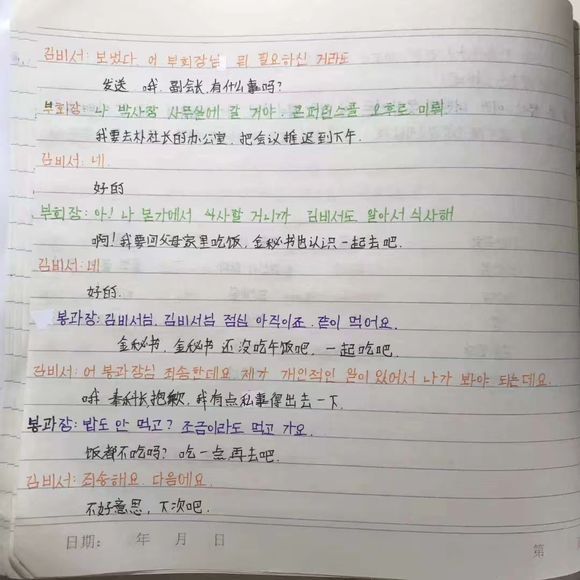 김비서: 보냈다. 어 부회장님 뭐 필요하신 거라도
发送 哦, 副会长,有什么事吗?
부회장: 나 박사장 사무실에 갈 거야. 콘퍼런스콜 오후로 미뤄
我要去朴社长的办公室, 把会议推迟到下午.
김비서: 네.
好的
부회장: 아! 나 본가에서 식사할 거니까 김비서도 알아서 식사해
啊! 我要回父母家里吃饭, 金秘书也认识一起去吧.
김비서: 네
好的.
봉과장: 김비서님, 김비서님 점심 아직이죠. 같이 먹어요.
金秘书, 金秘书 还没吃午饭吧, 一起吃吧.
김비서: 어 봉과장님 죄송한데요. 제가 개인적인 일이 있어서 나가 봐야 되는데요.
哦 科长抱歉, 我有点私事得出去一下.
봉과장: 밥도 안 먹고? 조금이라도 먹고 가요.
饭都不吃吗? 吃一点再去吧.
김비서: 죄송해요. 다음에요.
不好意思, 下次吧.
日期: 年 月 日
第